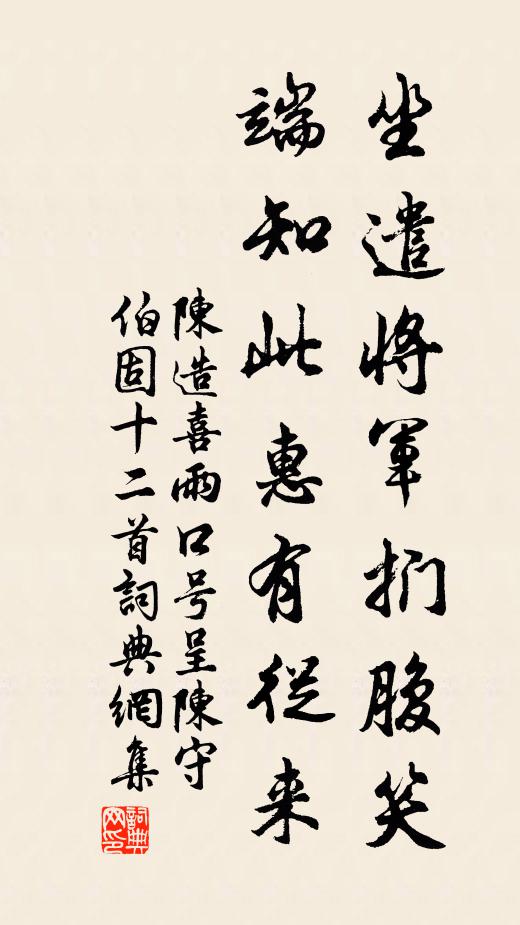 坐遣將軍捫腹笑
端知此惠有從来
陳造喜雨口号呈陳守
伯固十二首詞典網集
詞典网印